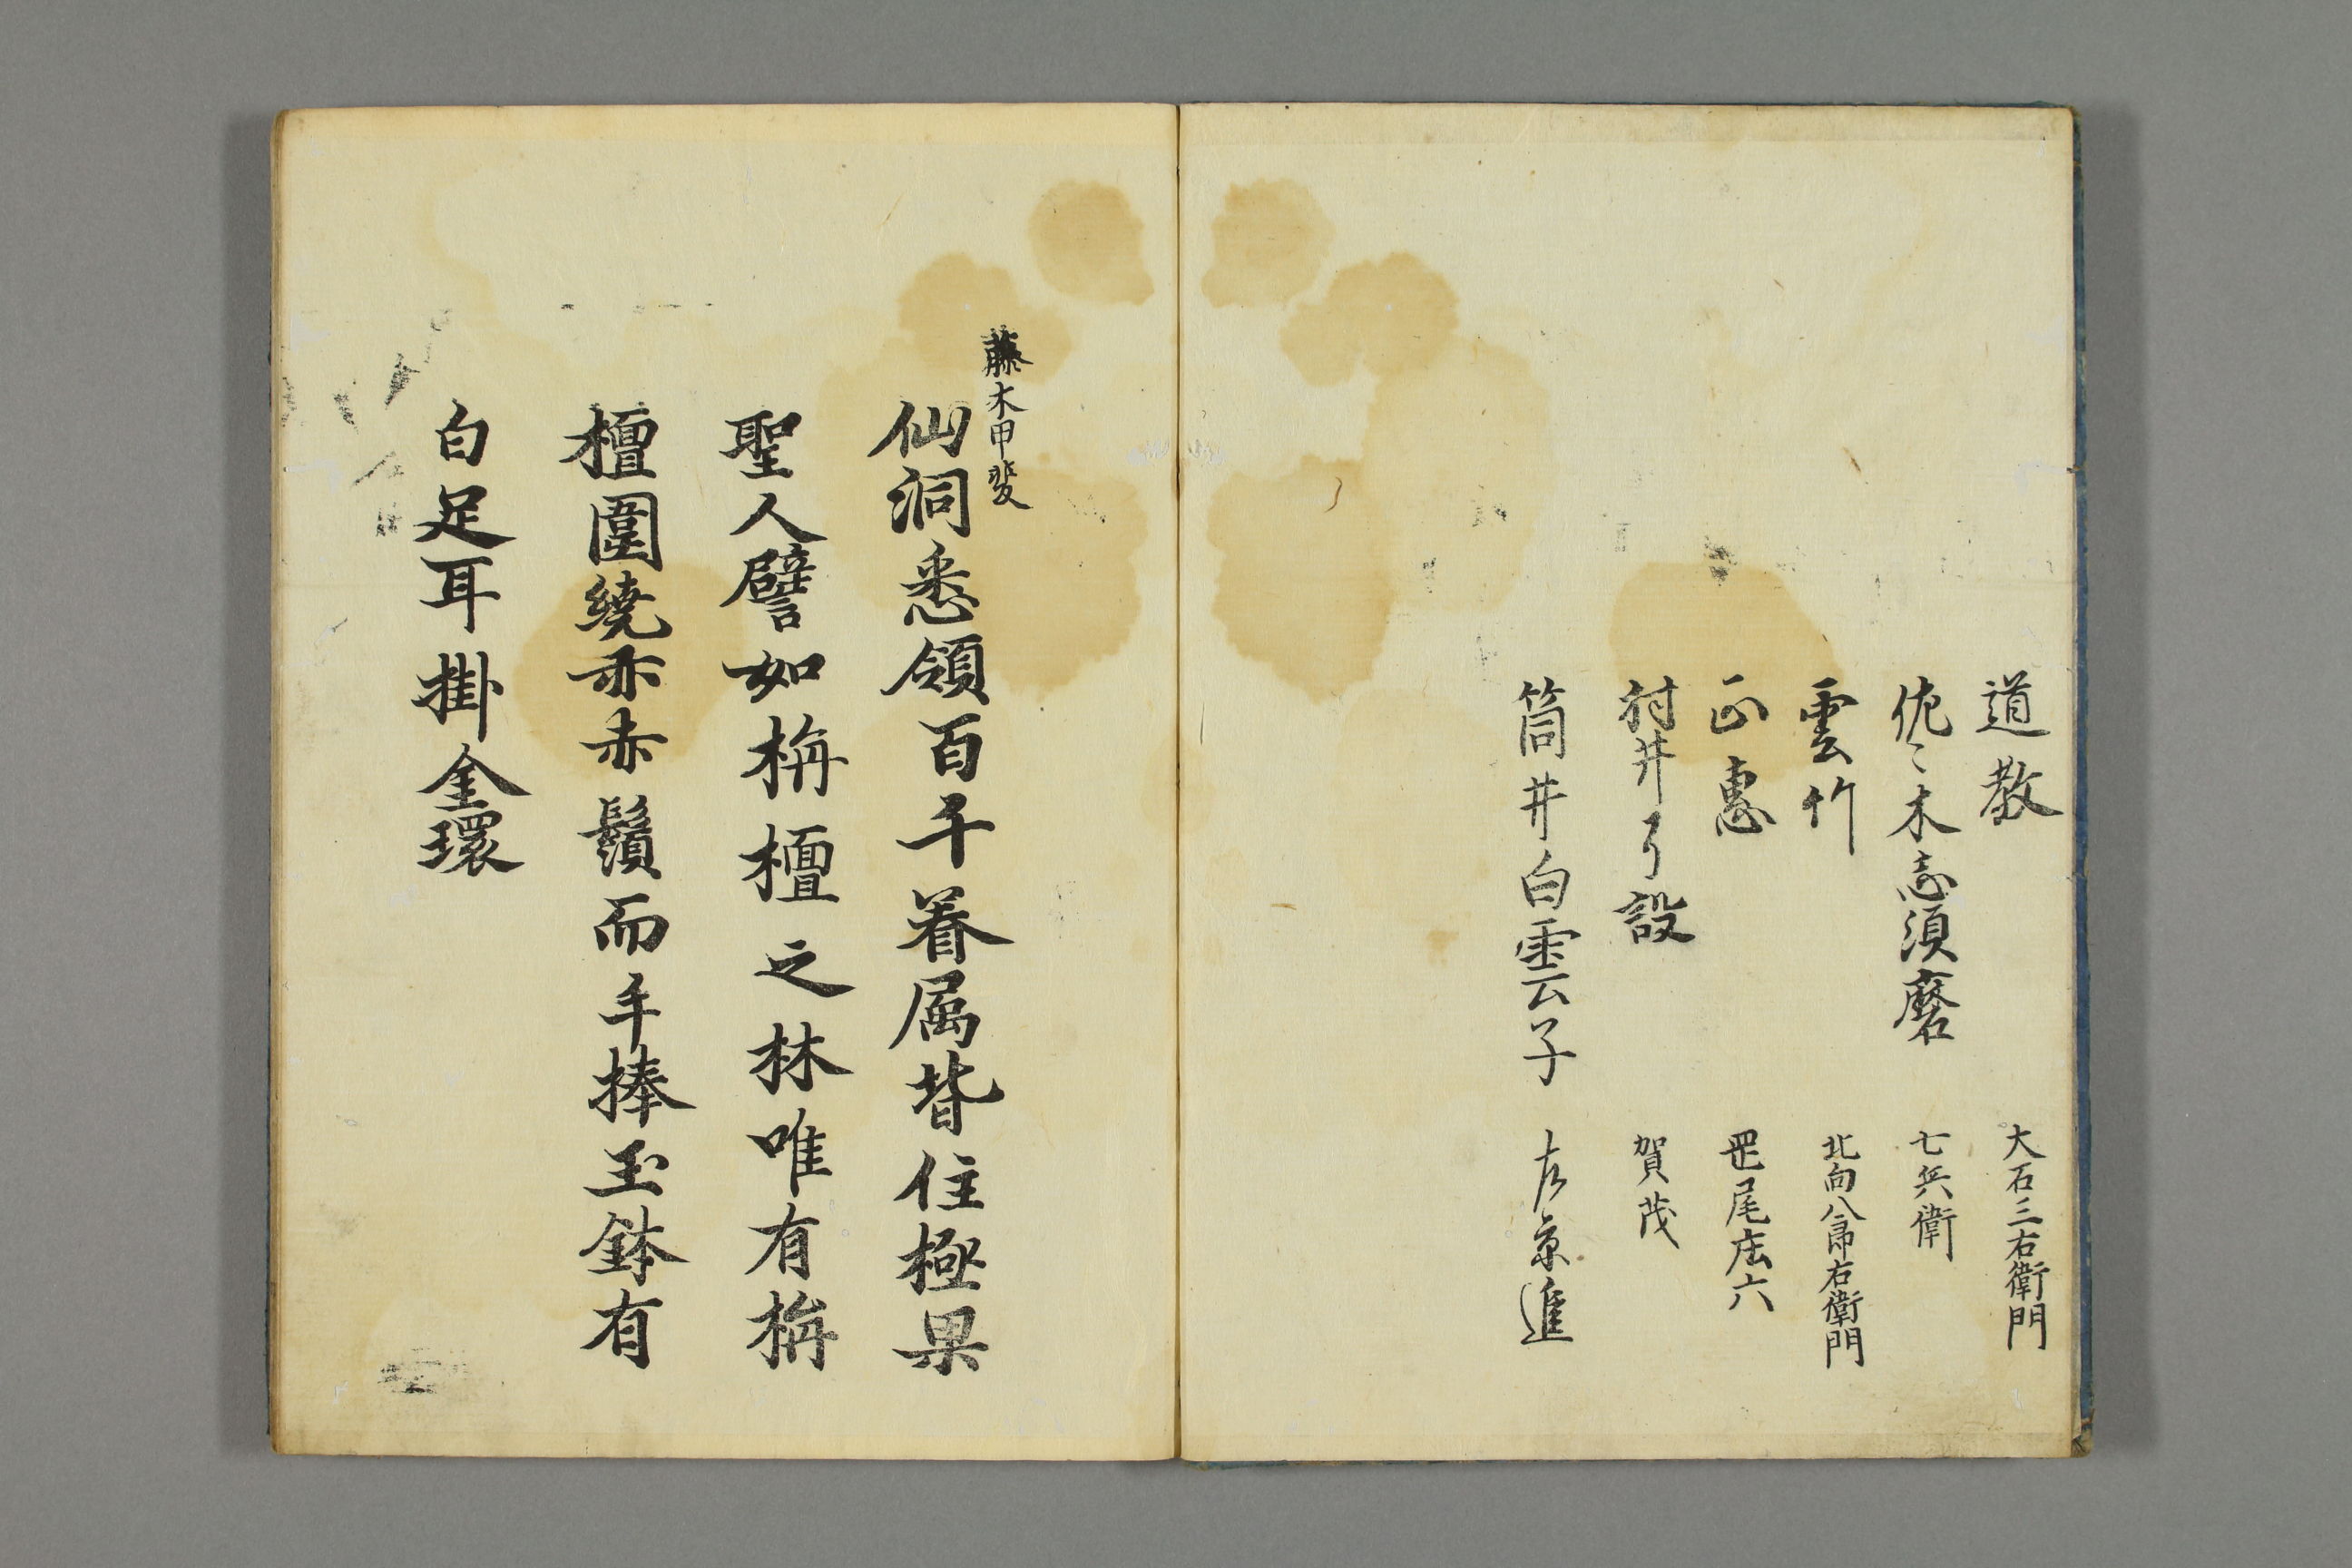 道教　大石三右衛門
佐々木志須磨　七兵衛
雲竹　北向八郎右衛門
正恵　尾庄六
村井了設　賀茂
筒井白雲子　左京進
藤木甲斐
仙洞悉領百千眷属皆住極果
聖人譬如栴檀之林唯有栴
檀圍繞亦赤鬚而手捧玉鉢有
白足耳掛金環